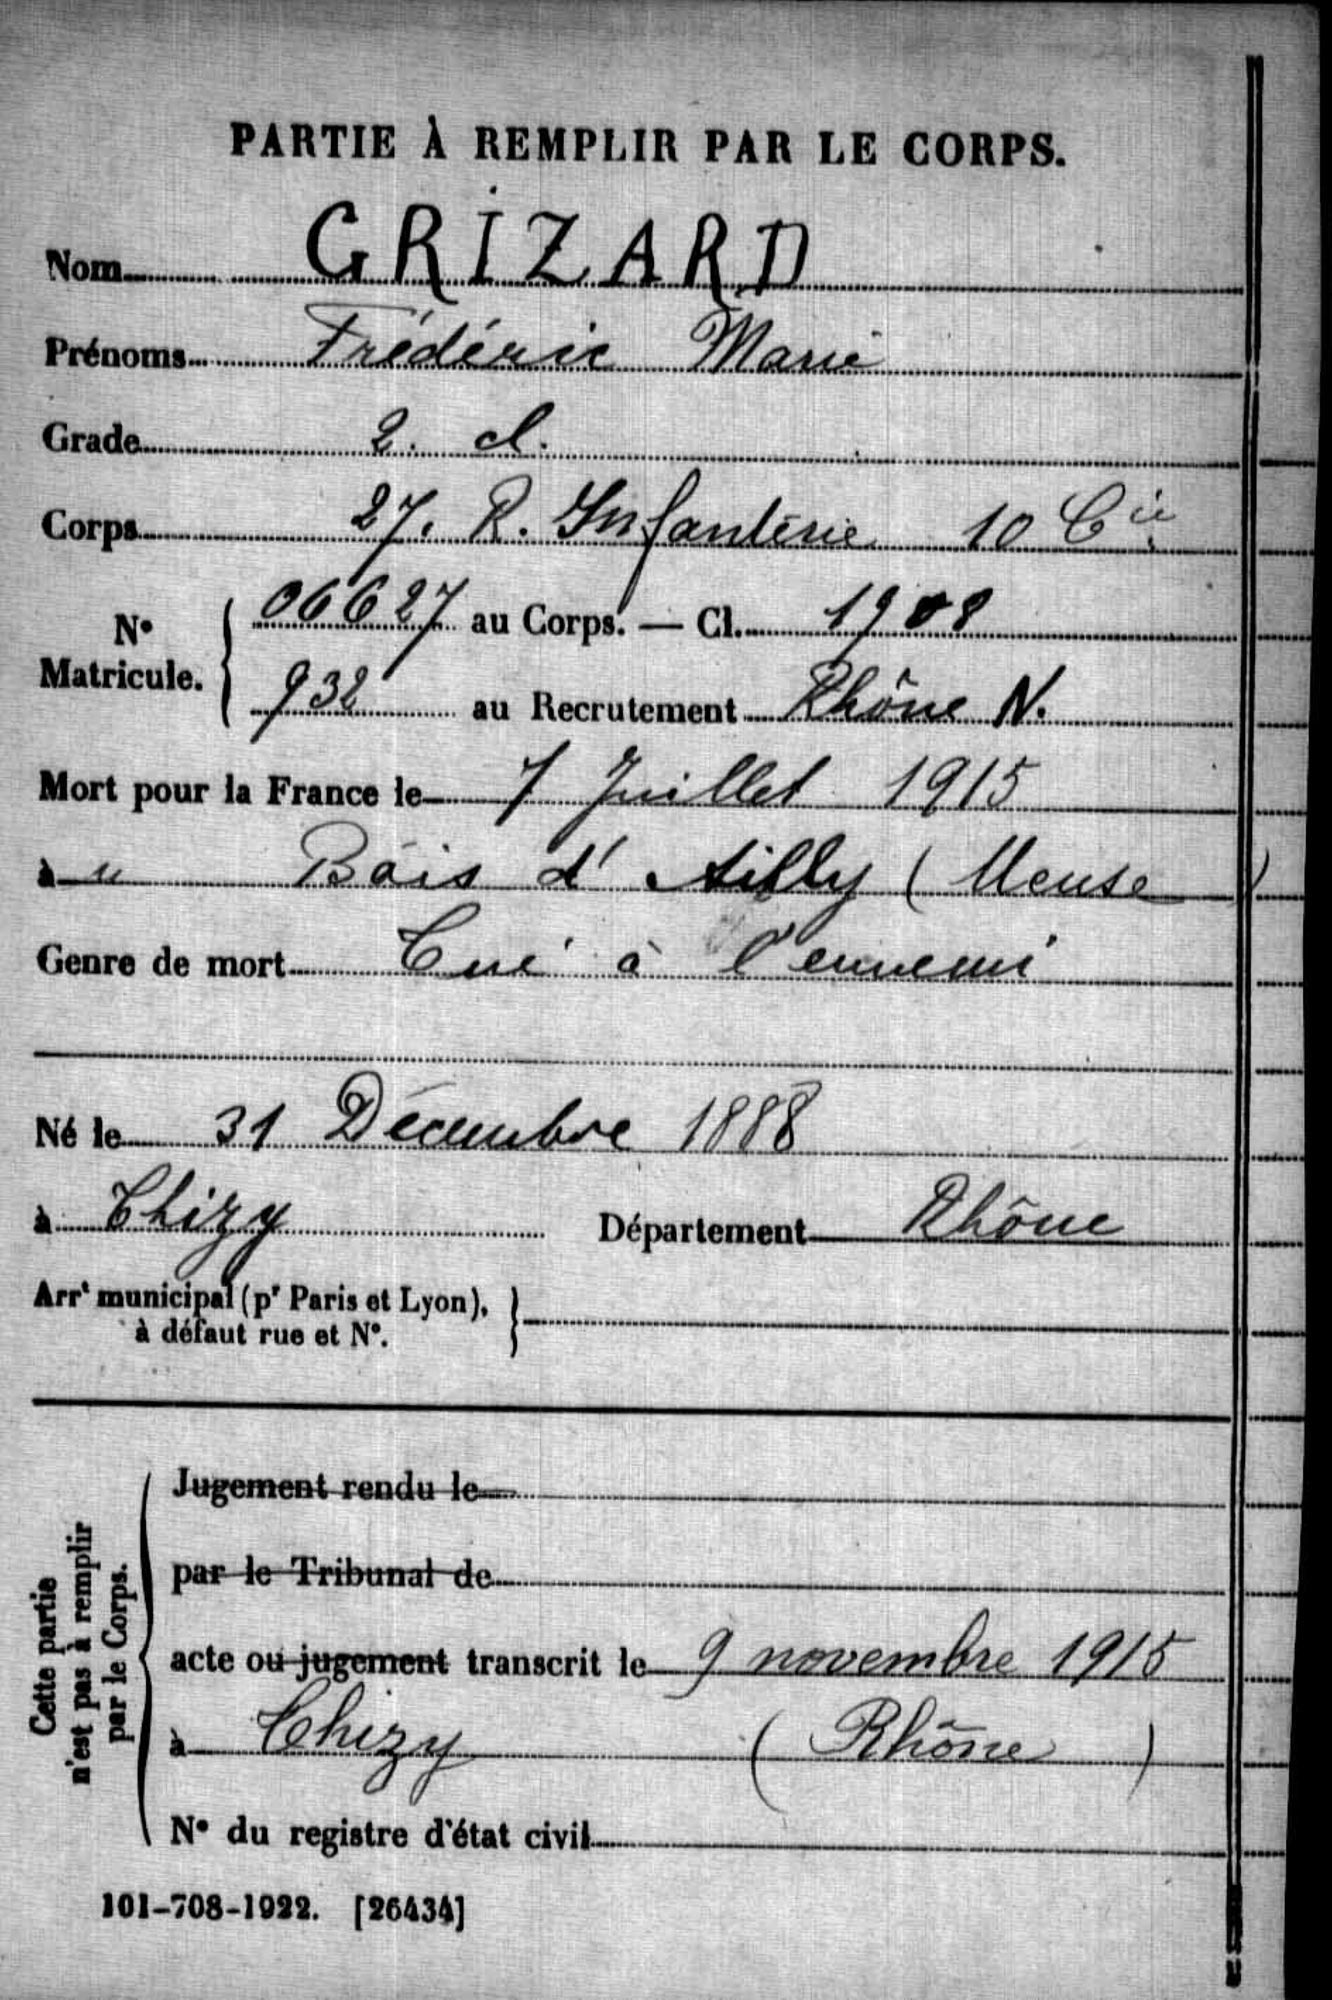 PARTIE À REMPLIR PAR LE CORPS.
Nom GRIZARD
Prénoms Frédéric Marie
Grade 2. cl.
Corps 27. R. Infanterie 10 Cie.
No Matricule. { 06627 au Corps. — Cl. 1908
932 au Recrutement Rhône N.
Mort pour la France le 7 Juillet 1915
à u Bois d'Ailly (Meuse)
Genre de mort Tué à l'ennemi
Né le 31 Décembre 1888
à Thizy Département Rhône
Arrt municipal (pr Paris et Lyon), }
à défaut rue et No.
Cette partie
n'est pas à remplir
par le Corps.
Jugement rendu le
par le Tribunal de
acte ou jugement transcrit le 9 novembre 1915
à Thizy (Rhône)
No du registre d'état civil
101-708-1922. [26434]